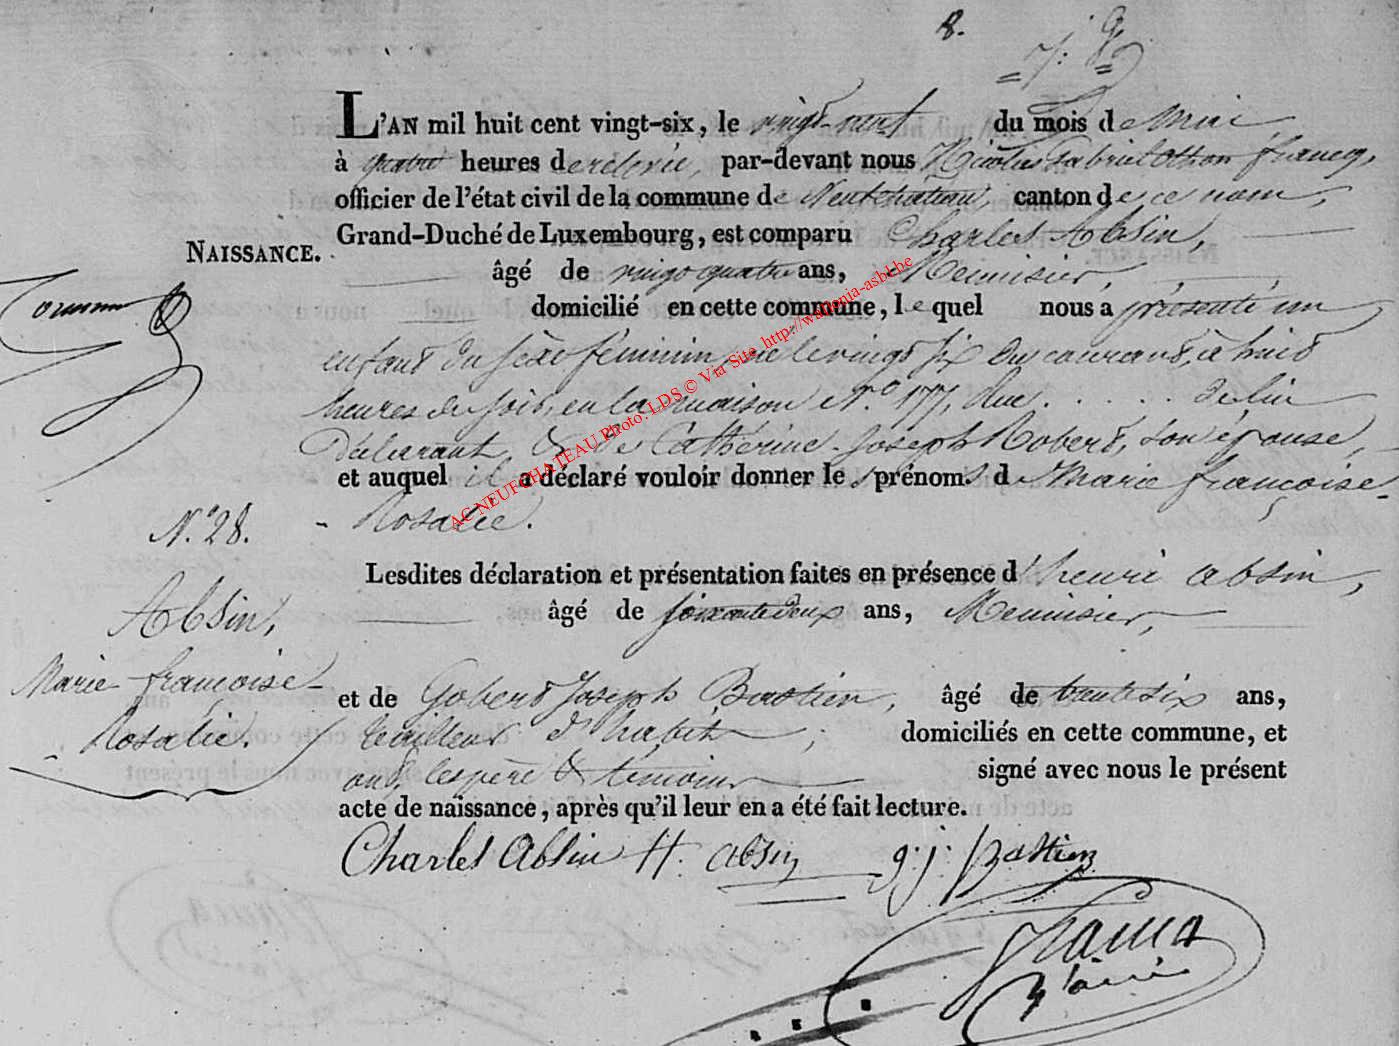 8.
L'AN mil huit cent vingt-six, le vingt-neuf du mois de Mai
à quatre heures de relevée, par-devant nous Nicolas Gabriel Othon francq,
officier de l'état civil de la commune de Neufchateau, canton de ce nom,
Grand-Duché de Luxembourg, est comparu Charles Absin,
NAISSANCE.
âgé de vingt quatre ans, Menuisier,
domicilié en cette commune, lequel nous a présenté un
enfant du sèxe féminin, née le vingt six du courant, à huit
heures du soir, en la maison N.o 177, rue . . . . . de lui
déclarant & de Cathérine Joseph Robert, son épouse,
et auquel il a déclaré vouloir donner les prénoms de Marie françoise
Rosalie.
AC NEUFCHATEAU Photo: LDS © Via Site http://wallonia-asbl.be
N.o 28.
Absin,
Marie françoise
Rosalie.
Lesdites déclaration et présentation faites en présence d'henri absin,
âgé de soixante deux ans, Menuisier,
et de Gobert Joseph Bastien, âgé de trente six ans,
tailleur d'habits, domiciliés en cette commune, et
ont les père & témoins signé avec nous le présent
acte de naissance, après qu'il leur en a été fait lecture.
Charles Absin H. absin g. j. Bastien